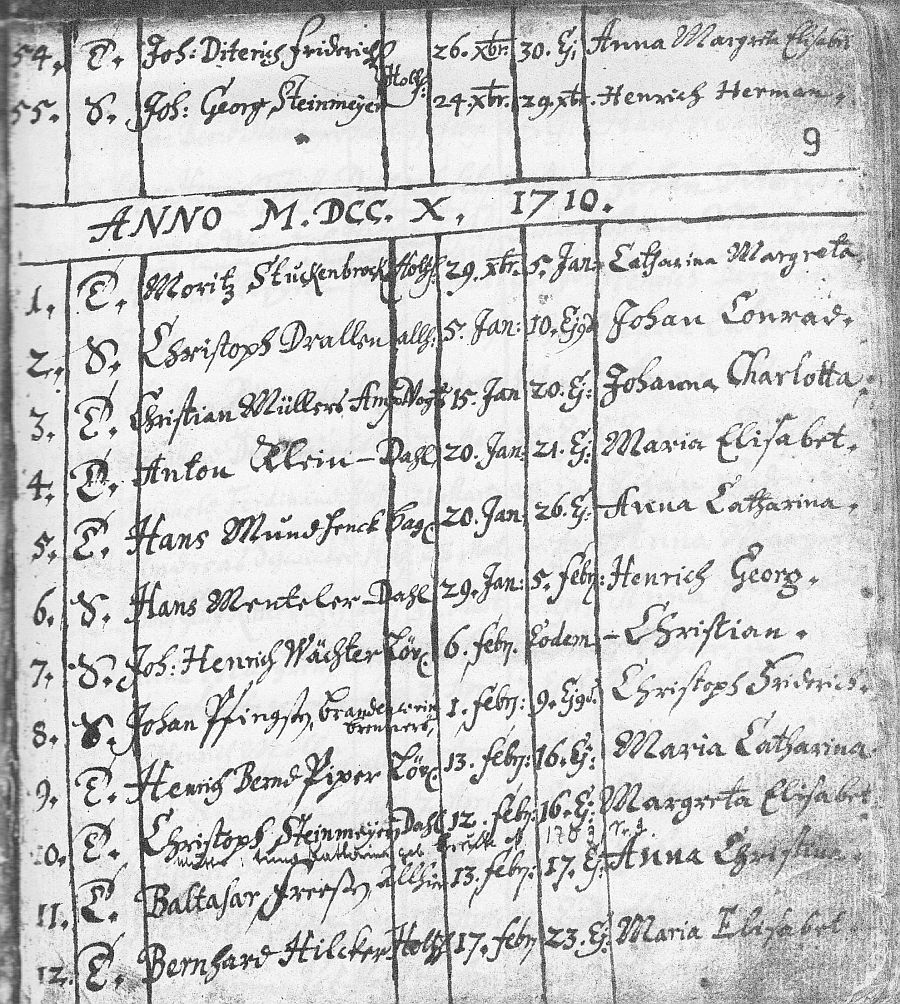 54. T. Joh: Diterich Friderich Holtz: 26. Xbr. 30. Ej: Anna Margreta Elisabet
55. S. Joh: Georg Steinmeyer 24. Xbr. 29. Xbr. Henrich Herman.
9
ANNO M. DCC. X. 1710.
1. T. Moritz Stuckenbrock Holtz: 29. Xbr. 5. Jan: Catharina Margreta.
2. S. Christoph Drallen allh: 5. Jan: 10. Ejgd. Johan Conrad.
3. T. Christian Müllers Amp Vogts 15. Jan 20. Ej: Johanna Charlotta.
4. T. Anton Klein – Dahl 20. Jan: 21. Ej: Maria Elisabet.
5. T. Hans Mundhenck hag: 20. Jan: 26. Ej: Anna Catharina.
6. S. Hans Menteler – Dahl 29. Jan: 5. Febr: Henrich Georg.
7. S. Joh: Henrich Wächter Lör: 6. Febr. Eodem – Christian.
8. S. Johan Pfingsty, brandewein 1. Febr: 9. Ejgd. Christoph Friderich.
brenners,
9. T. Henrich Bernd Piper Lör: 13. Febr: 16. Ej: Maria Catharina.
10. T. Christoph Steinmeyer Dahl 12. Febr: 16. Ej: Margreta Elisabet
11. T. Baltasar Freesy allhie 13. Febr: 17. Ej: Anna Christina
12. T. Bernhard Hilcker Holtz 17. Febr 23. Ej: Maria Elisabet.